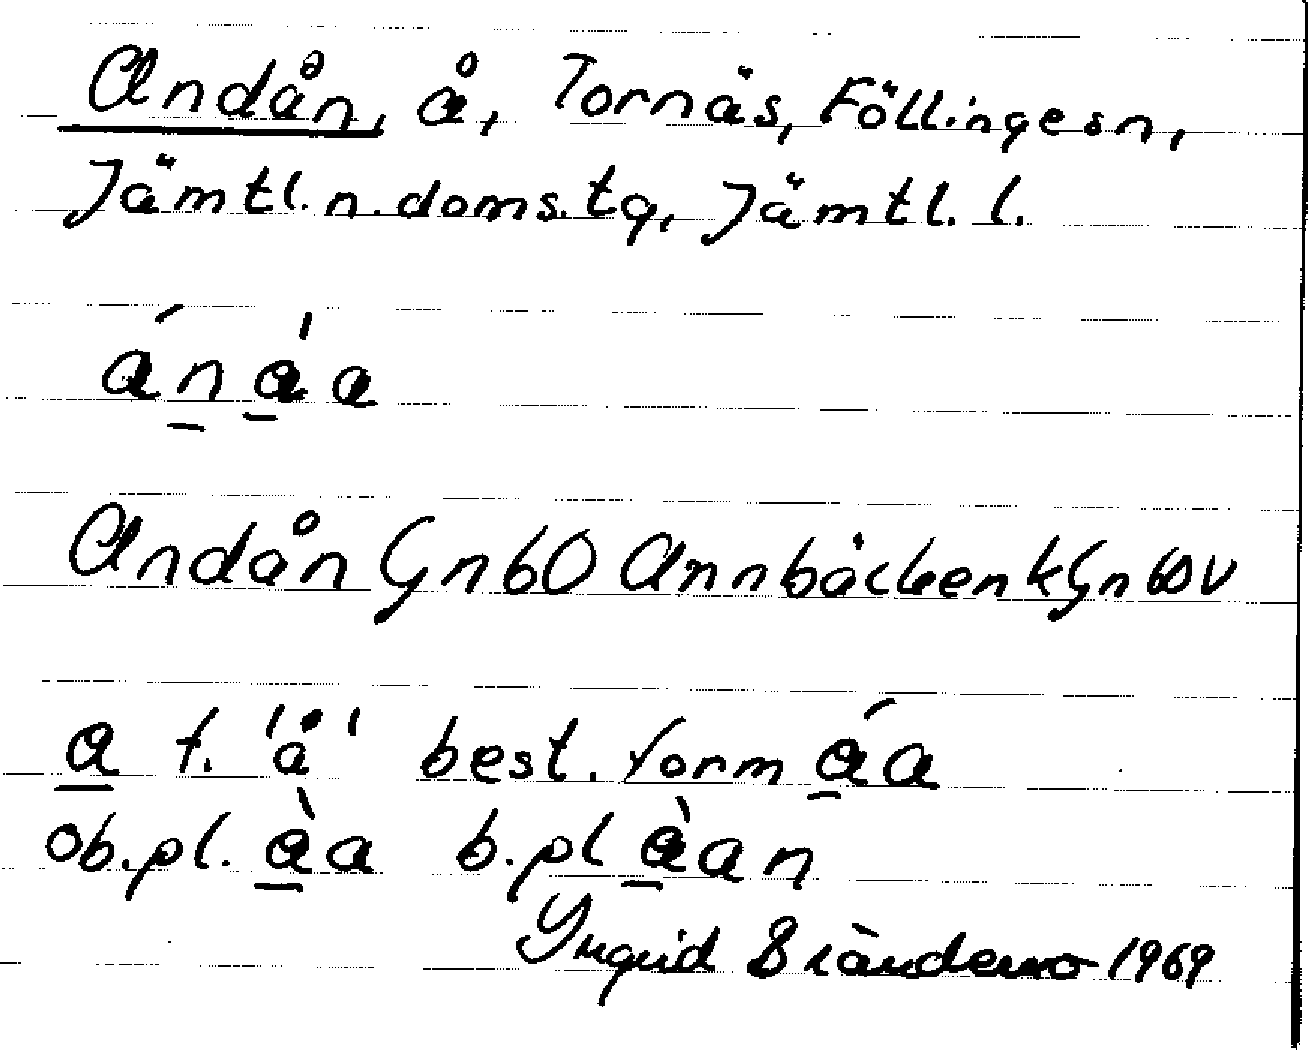 Andån, å, Tornäs, Föllingesn,
Jämtl.n.doms.tg, Jämtl. l.
án̲a̲̍a
Andån Gnbo Annbäcken kGnbov
a̲ f. 'å' best. form á̲a
ob.pl. à̲a b.pl à̲an
Yngvid Brändemo 1969